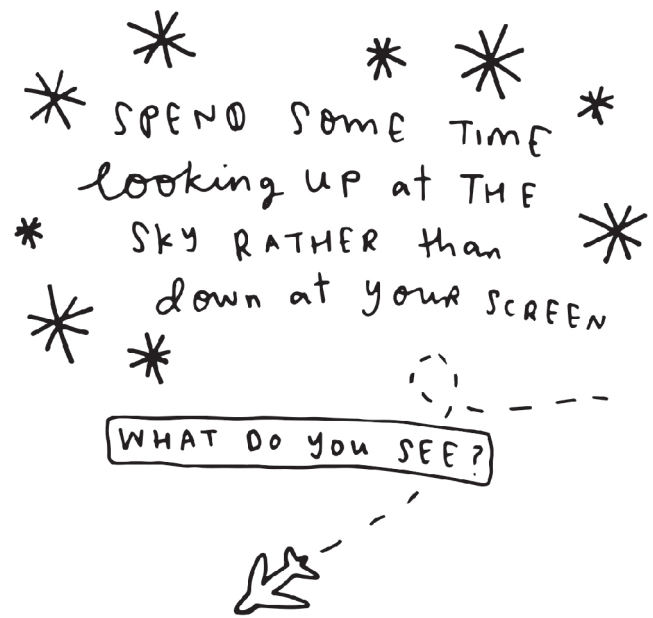 SPEND SOME TIME
looking UP at THE
SKY RATHER than
down at your SCREEN
WHAT DO YOU SEE?